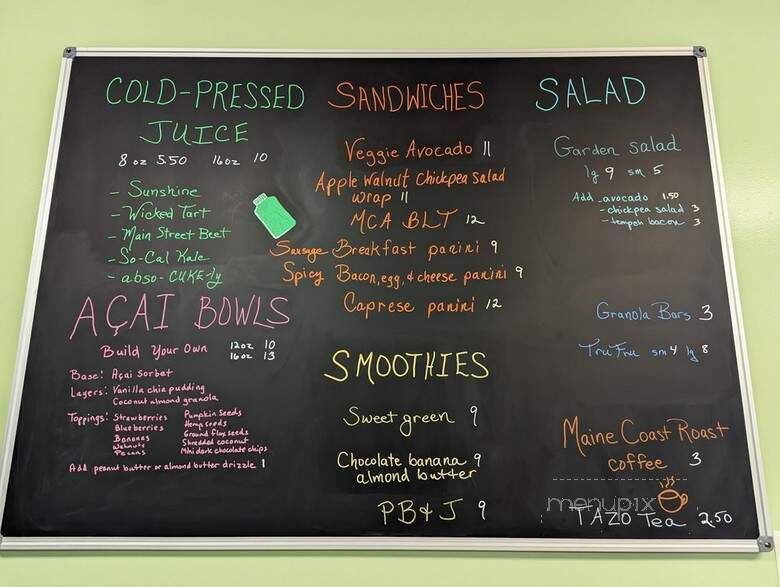 COLD-PRESSED
JUICE
8 oz 5.50 16oz 10
- Sunshine
- Wicked Tart
- Main Street Beet
- So-Cal Kale
- abso-CUKE-ly
AÇAI BOWLS
Build Your Own 12oz 10
16oz 13
Base: Açai sorbet
Layers: Vanilla chia pudding
Coconut almond granola
Toppings: Strawberries
Blueberries
Bananas
Walnuts
Pecans
Pumpkin seeds
Hemp seeds
Ground flax seeds
Shredded coconut
Mini dark chocolate chips
Add peanut butter or almond butter drizzle 1
SANDWICHES
Veggie Avocado 11
Apple Walnut Chickpea Salad
wrap 11
MCA BLT 12
Sausage Breakfast panini 9
Spicy Bacon, egg, & cheese panini 9
Caprese panini 12
SMOOTHIES
Sweet green 9
Chocolate banana 9
almond butter
PB & J 9
SALAD
Garden salad
lg 9 sm 5
Add - avocado 1.50
- chickpea salad 3
- tempeh bacon 3
Granola Bars 3
TruFru sm 4 lg 8
Maine Coast Roast
coffee 3
menupix
TAZO Tea 2.50